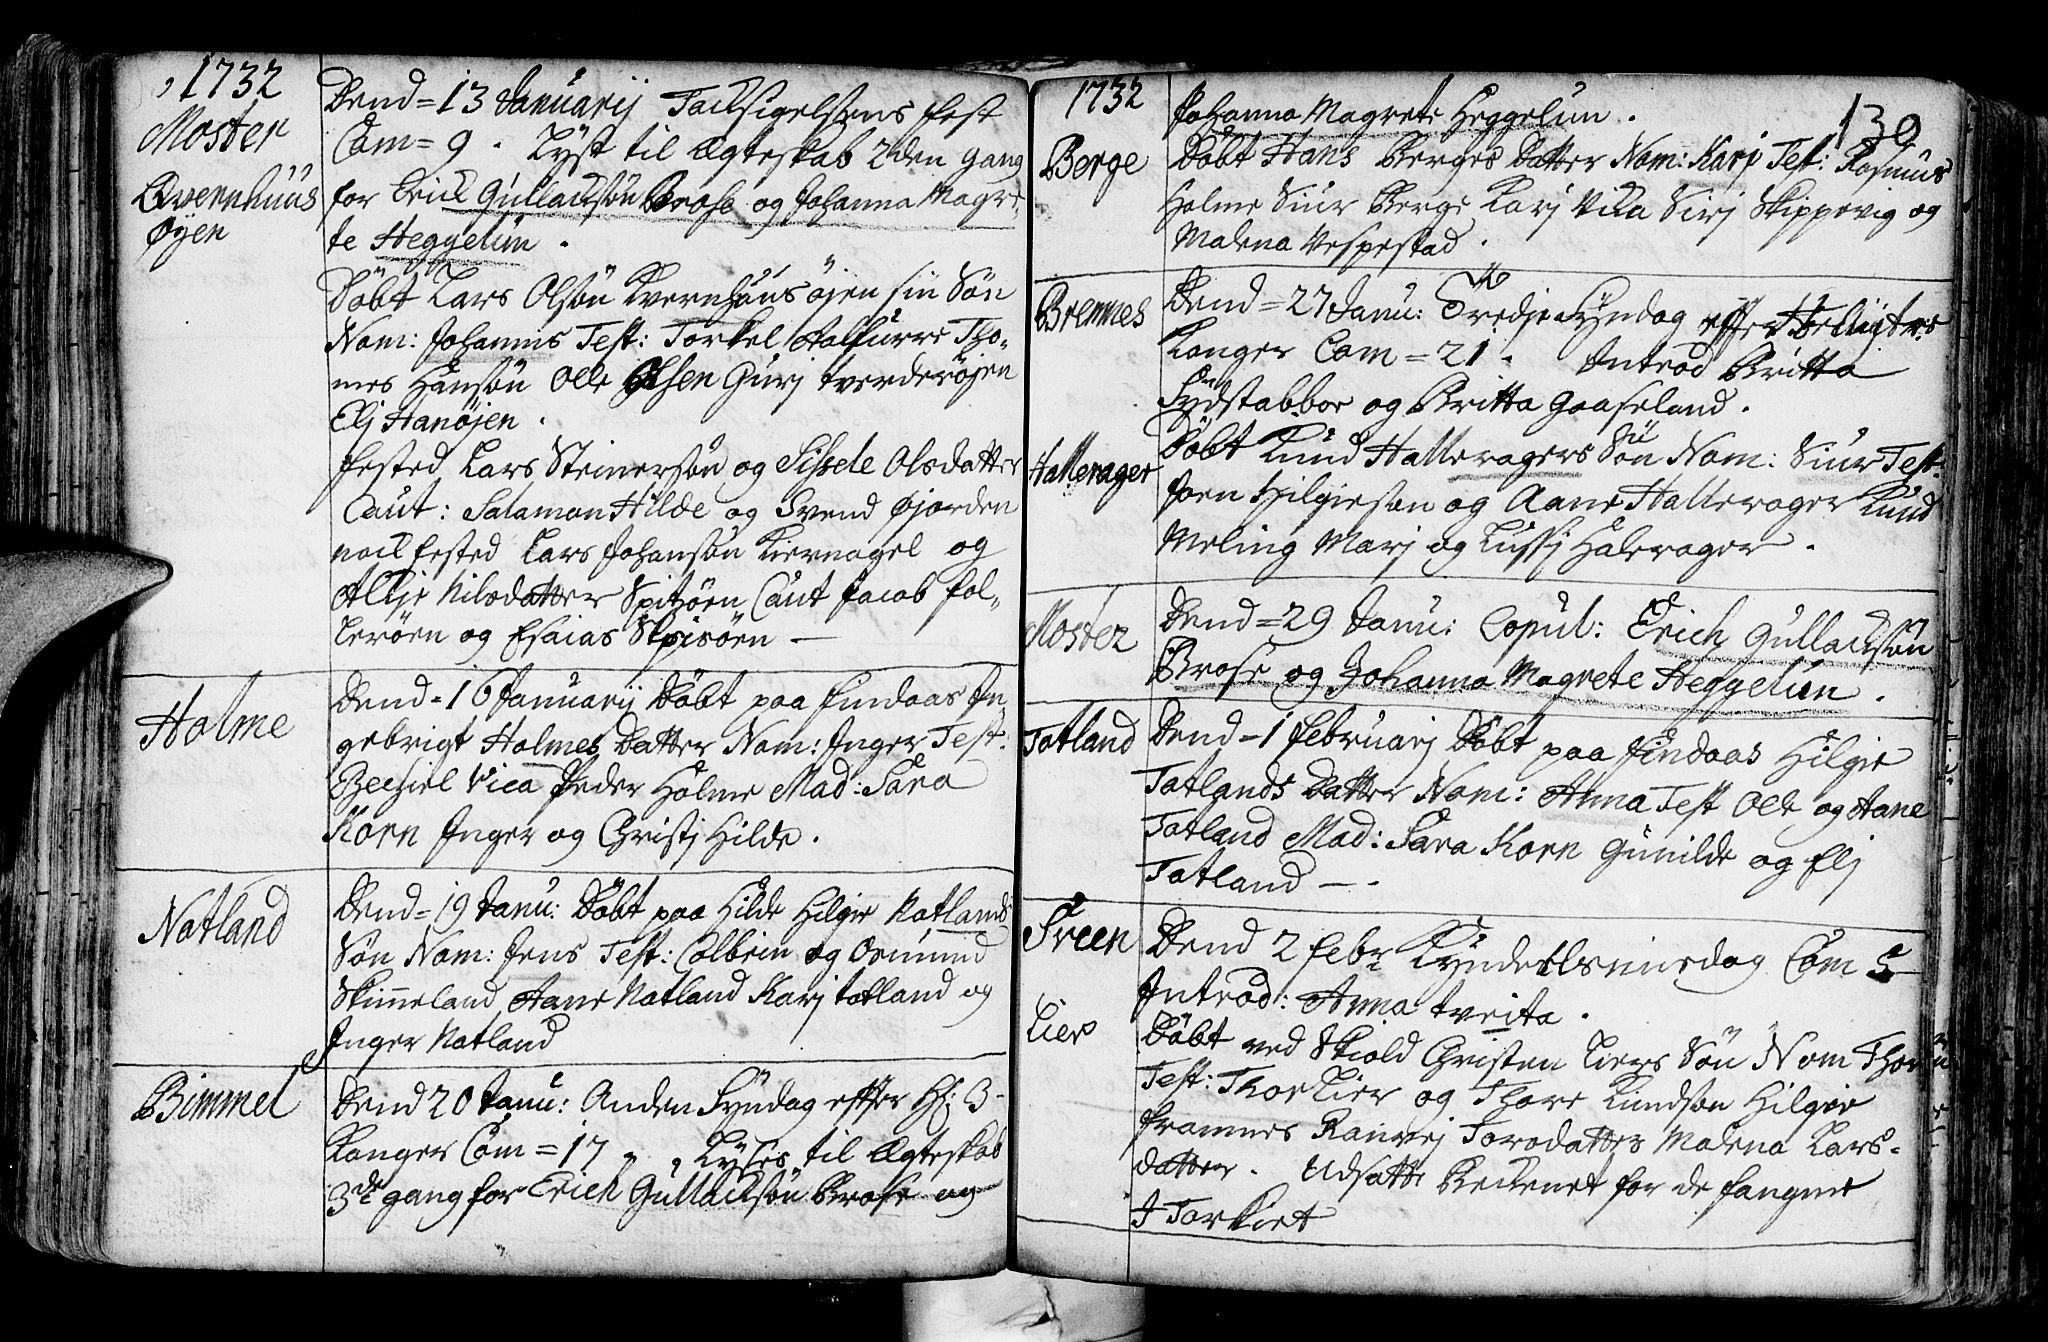 1732
Moster
Qvernhuus
Øyen
Dend = 13 Januarij Tacksigelsens fest
Com = 9. Lyst til Ægteskab 2den gang
for Erick Gullacksøn Brose og Johanna Magre-
te Heggelun.
Døbt Lars Olsøn Kvernhuusøjen sin Søn
Nom: Johannis Test: Torkel Aalfurre Tho-
mes Hansøn Olle Olsen Guri tverderøjen
Elj Hanøjen.
fested Lars Steinersøn og Sissele Olsdatter
Caut: Salamon Hilde og Svend Øjorden
noch fested Lars Johansøn Kiernagel og
Nilsdatter Spitzøen Caut Jacob fol-
lerøen og Esaias Spisøen —
Holme
Dend = 16 Januarij Døbt paa findaas In
gebrigt Holmes Datter Nom: Inger Test:
Zechiel Vica Peder Holme Mad: Sara
Korn Inger og Christj Hilde.
Natland
Dend = 19 Janu: Døbt paa Hilde Hilgie Natlands
Søn Nom: Jens Test: Colbein og Osmund
Skimmeland Aane Natland Karj totland og
Inger Natland
Bimmel
Dend 20 Janu: Anden Syndag efter H: 3-
Konger Com = 17. Lyses til Ægteskab
3de gang for Erich Gullacksøn Brose og
1732
130
Johanna Magrete Heggelun.
Berge
Døbt Hans Berges Datter Nom: Karj Test: Rasmus
Holme Siur Berge Karj Vika Sirj Skippevig og
Malena Vespestad.
Bremnes
Dend = 27 Janu: Tredje Syndag efter Helligtre
Konger Com = 21. Introd Britta
Sydstabboe og Britta Gaaseland.
Hallerager
Døbt Knud Halleragers Søn Nom: Siur Test:
Joen Hilgiesøn og Aane Hallerager Knud
Meling Marj og Lussj Halerager.
Moster
Dend = 29 Janu: Copul: Erich Gullacksøn
Brose og Johanna Magrete Heggelun.
Totland
Dend = 1 februarj Døbt paa findaas Hilgie
Totlands Datter Nom: Anna Test Ole og Aane
Totland Mad: Sara Korn Gunilde og Elj
Totland —.
Freen
Dend 2 febr: Kyndelsmisdag Com 5
Introd: Anna tveita.
Lier
Døbt ved Skiold Christen Liers Søn Nom
Test: Thor Lier og Thore Knudsøn Hilgie
framnes Ranvej Torsdatter Malena Lars-
datter. Udsatte Beckenet for de fangne
I Torkiet